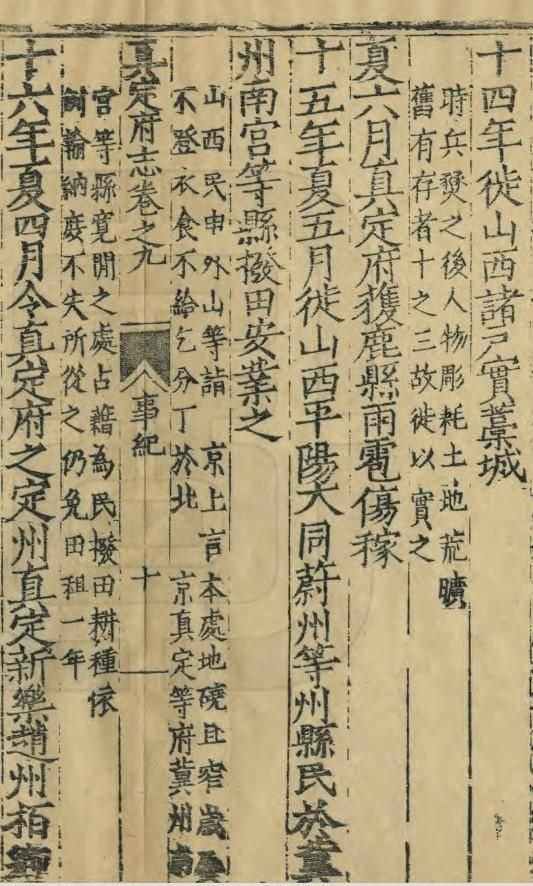 十四年徙山西諸戶實藁城
時兵燹之後人物彫耗土地荒曠
舊有存者十之三故徙以實之
夏六月真定府獲鹿縣雨雹傷稼
十五年夏五月徙山西平陽大同蔚州等州縣民於冀
州南宮等縣撥田安業之
山西民申外山等詣 京上言本處地磽且窄歲
不登衣食不給乞分丁於北 京真定等府冀州南
真定府志卷之九 事紀 十
宮等縣寬閒之處占籍為民撥田耕種依
例輸納庶不失所從之仍免田租一年
十六年夏四月令真定府之定州真定新樂趙州栢